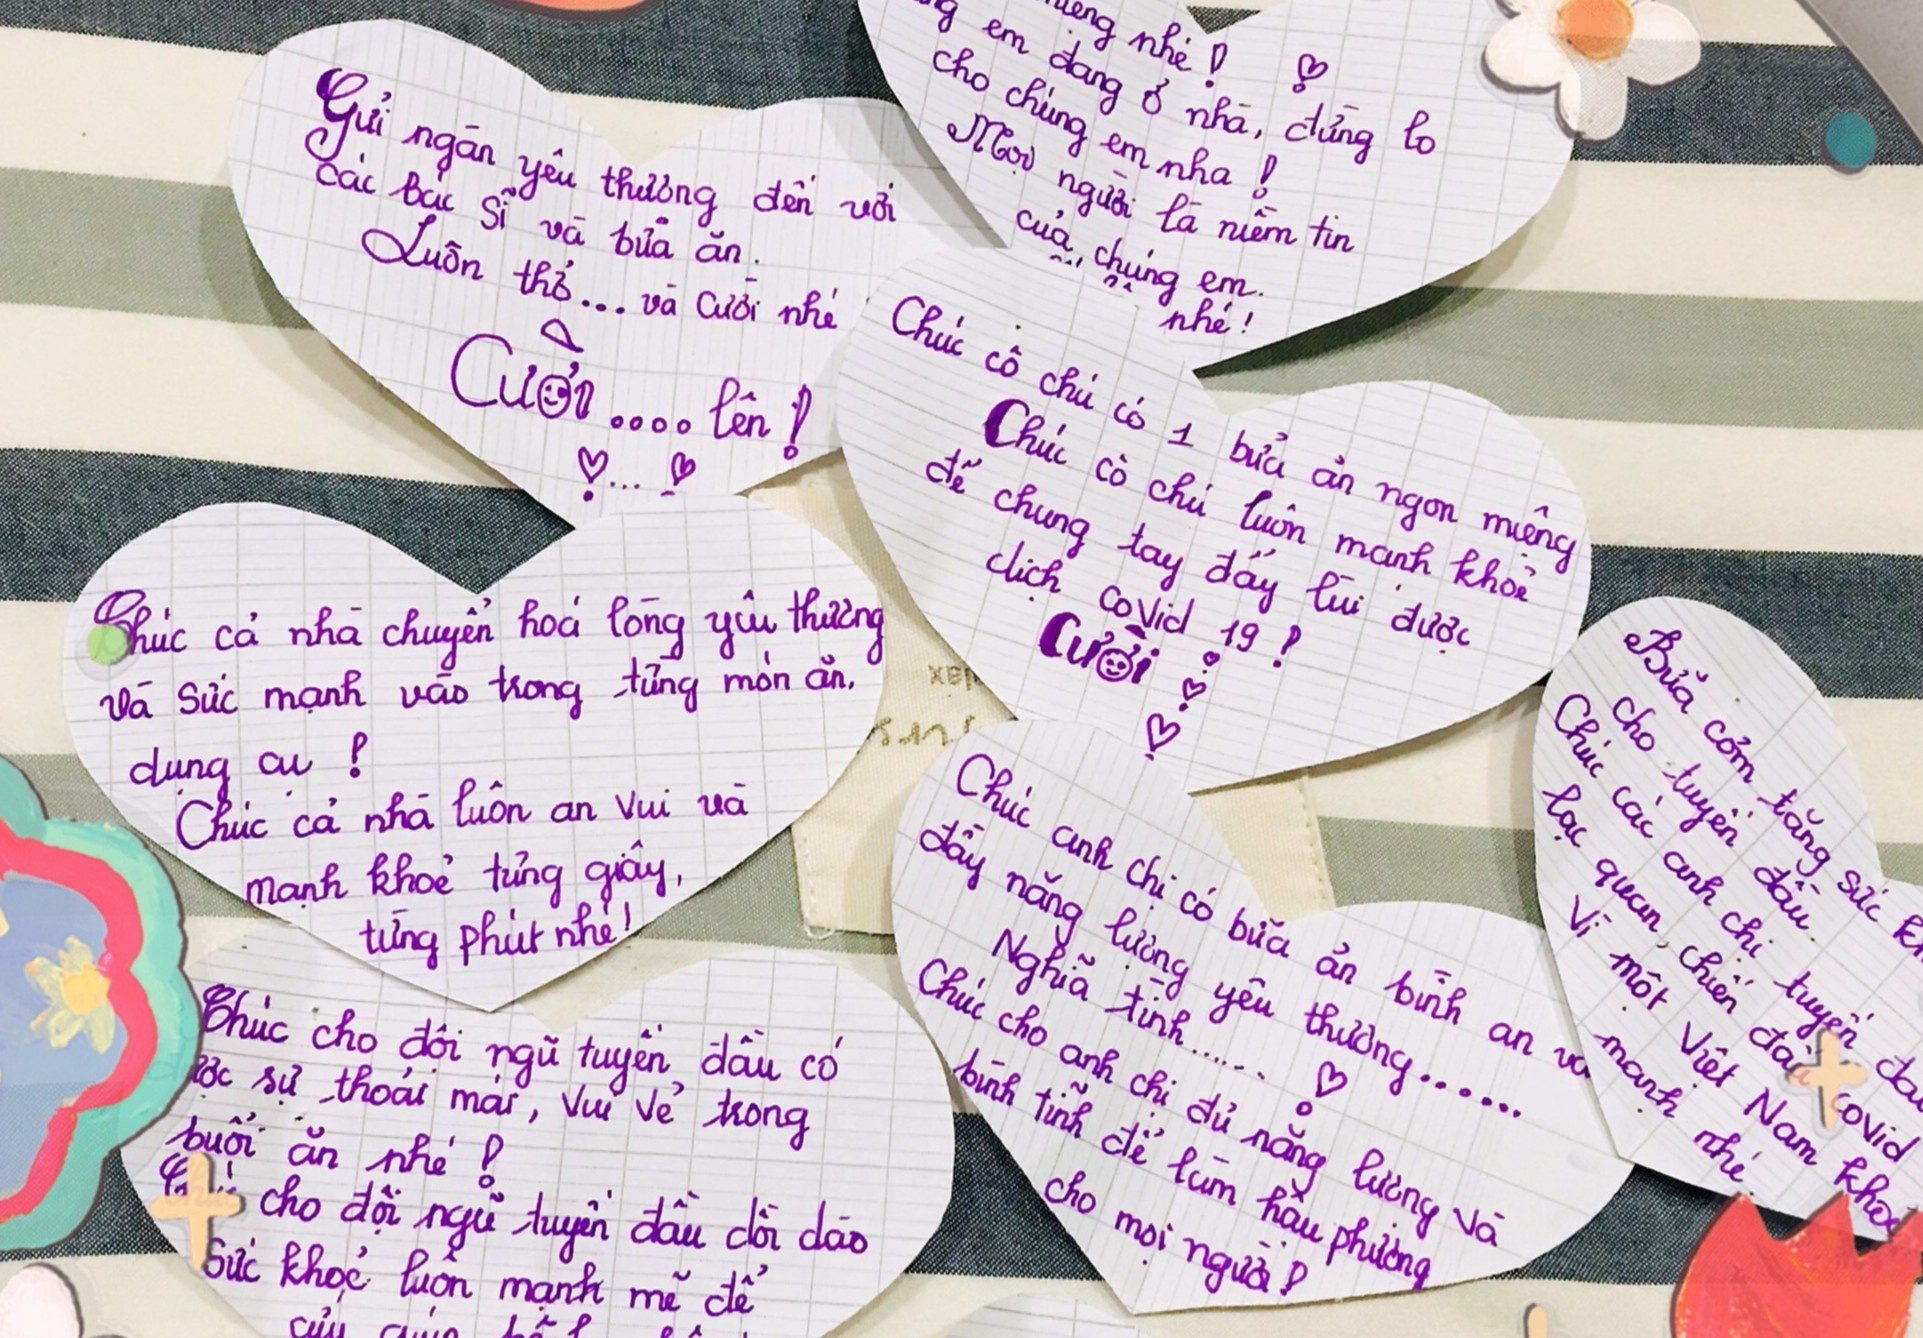 Gửi ngàn yêu thương đến với
các bác sĩ và bữa ăn.
Luôn thở... và cười nhé
Cười .... lên!
nhé!
em đang ở nhà, đừng lo
cho chúng em nha!
Mọi người là niềm tin
của chúng em.
nhé!
Chúc cô chú có 1 bữa ăn ngon miệng
Chúc cô chú luôn mạnh khoẻ
để chung tay đẩy lùi được
dịch covid 19!
Cười
Chúc cả nhà chuyển hoá lòng yêu thương
và sức mạnh vào trong từng món ăn,
dụng cụ!
Chúc cả nhà luôn an vui và
mạnh khoẻ từng giây,
từng phút nhé!
Chúc anh chị có bữa ăn bình an và
đầy năng lượng yêu thương......
Nghĩa tình.....
Chúc cho anh chị đủ năng lượng và
bình tĩnh để làm hậu phương
cho mọi người!
Bữa cơm tăng sức
cho tuyến đầu.
Chúc các anh chị tuyến
lạc quan, chiến đấu covid
Vì một Việt Nam khoẻ
mạnh nhé.
Chúc cho đội ngũ tuyến đầu có
sự thoải mái, vui vẻ trong
buổi ăn nhé!
cho đội ngũ tuyến đầu dồi dào
sức khoẻ luôn mạnh mẽ để